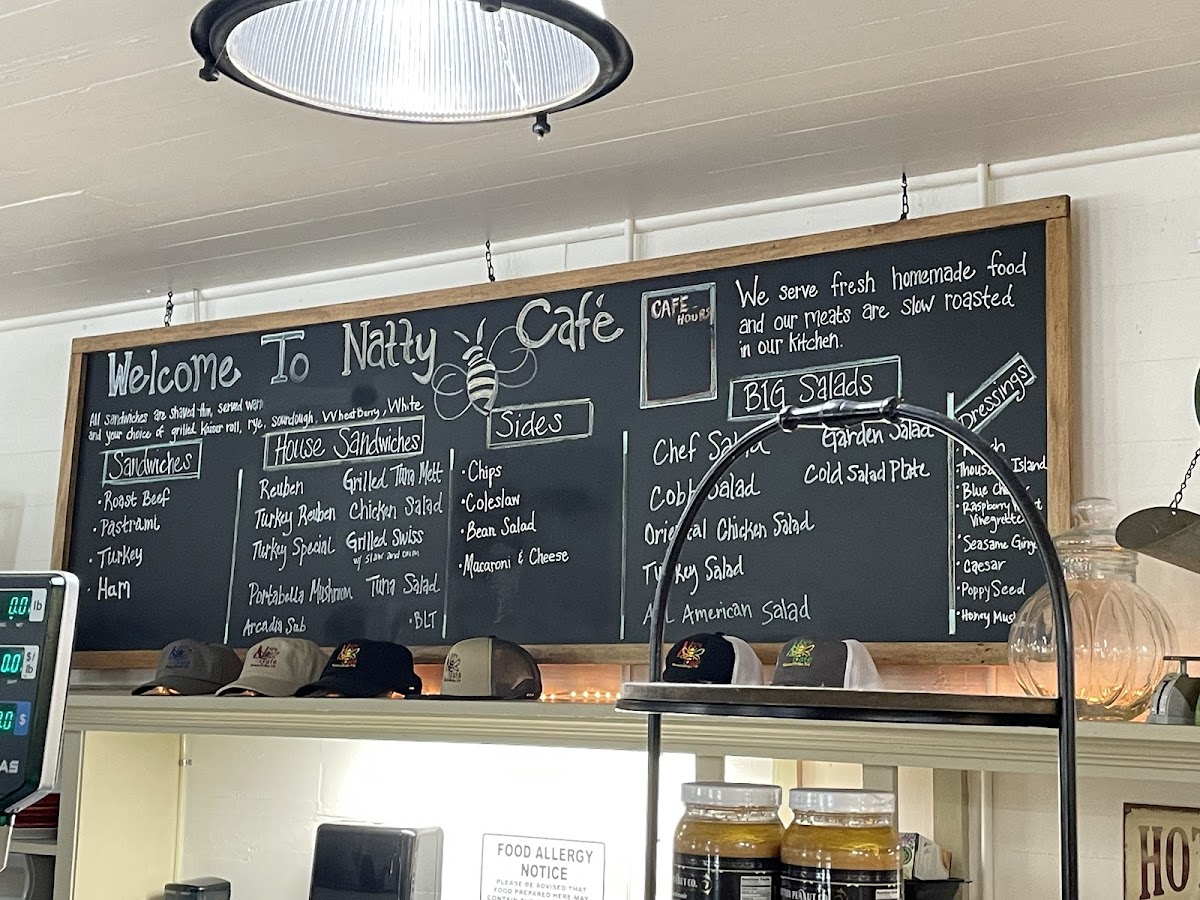 Welcome To Natty Café
All sandwiches are shaved thin, served warm
and your choice of grilled Kaiser roll, rye, sourdough, WheatBerry, White
Sandwiches
• Roast Beef
• Pastrami
• Turkey
• Ham
House Sandwiches
Reuben
Turkey Reuben
Turkey Special
Portabella Mushroom
Arcadia Sub
Grilled Tuna Melt
Chicken Salad
Grilled Swiss
w/ slaw and onion
Tuna Salad
• BLT
Sides
• Chips
• Coleslaw
• Bean Salad
• Macaroni & Cheese
CAFE
HOURS
We serve fresh homemade food
and our meats are slow roasted
in our kitchen.
BIG Salads
Chef Salad
Cobb Salad
Oriental Chicken Salad
Turkey Salad
All American Salad
Garden Salad
Cold Salad Plate
Dressings
Thousand Island
• Blue
Raspberry
Vinegrette
• Seasame
• Caesar
• Poppy Seed
• Honey
FOOD ALLERGY
NOTICE
PLEASE BE ADVISED THAT
FOOD PREPARED HERE MAY
0.0 lb
0.0 $/lb
0.0 $
AS
PEANUT
HOT